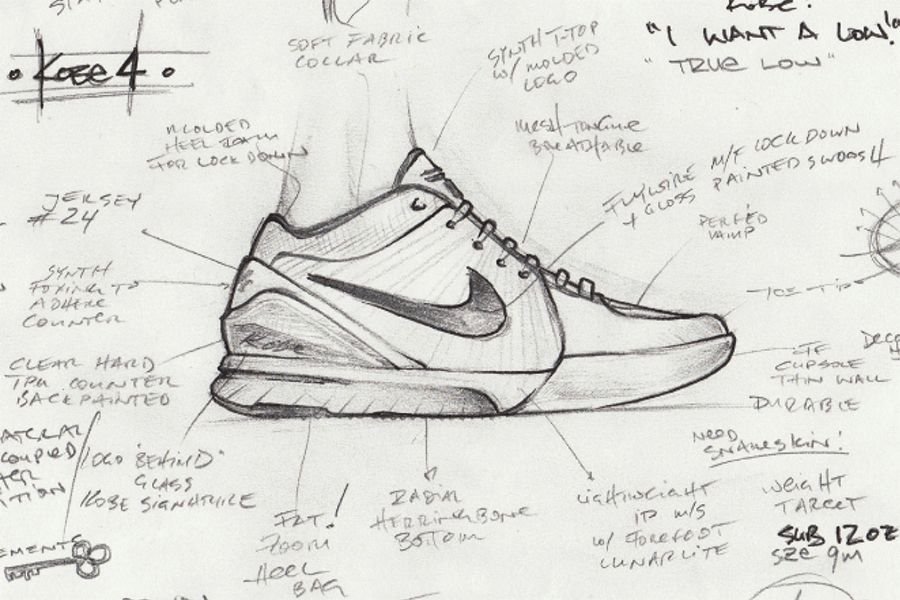 KOBE:
"I WANT A LOW!"
"TRUE LOW"
• KOBE 4 •
SOFT FABRIC
COLLAR
SYNTH T-TOP
W/ MOLDED
LOGO
MOLDED
HEEL
FOR LOCKDOWN
MESH TONGUE
BREATHABLE
FLYWIRE M/F LOCKDOWN
+ GLOSS PAINTED SWOOSH
PERFED
VAMP
JERSEY
#24
SYNTH
FOXING TO
ADHERE
COUNTER
TOE-TIP
KOBE
CLEAR HARD
TPU COUNTER
BACKPAINTED
CUPSOLE
THIN WALL
DURABLE
NEED
SNAKESKIN!
LOGO "BEHIND"
GLASS
KOBE SIGNATURE
FAT!
ZOOM
HEEL
BAG
RADIAL
HERRINGBONE
BOTTOM
LIGHTWEIGHT
IP M/S
W/ FOREFOOT
LUNARLITE
WEIGHT
TARGET
SUB 12 OZ
SZE 9M